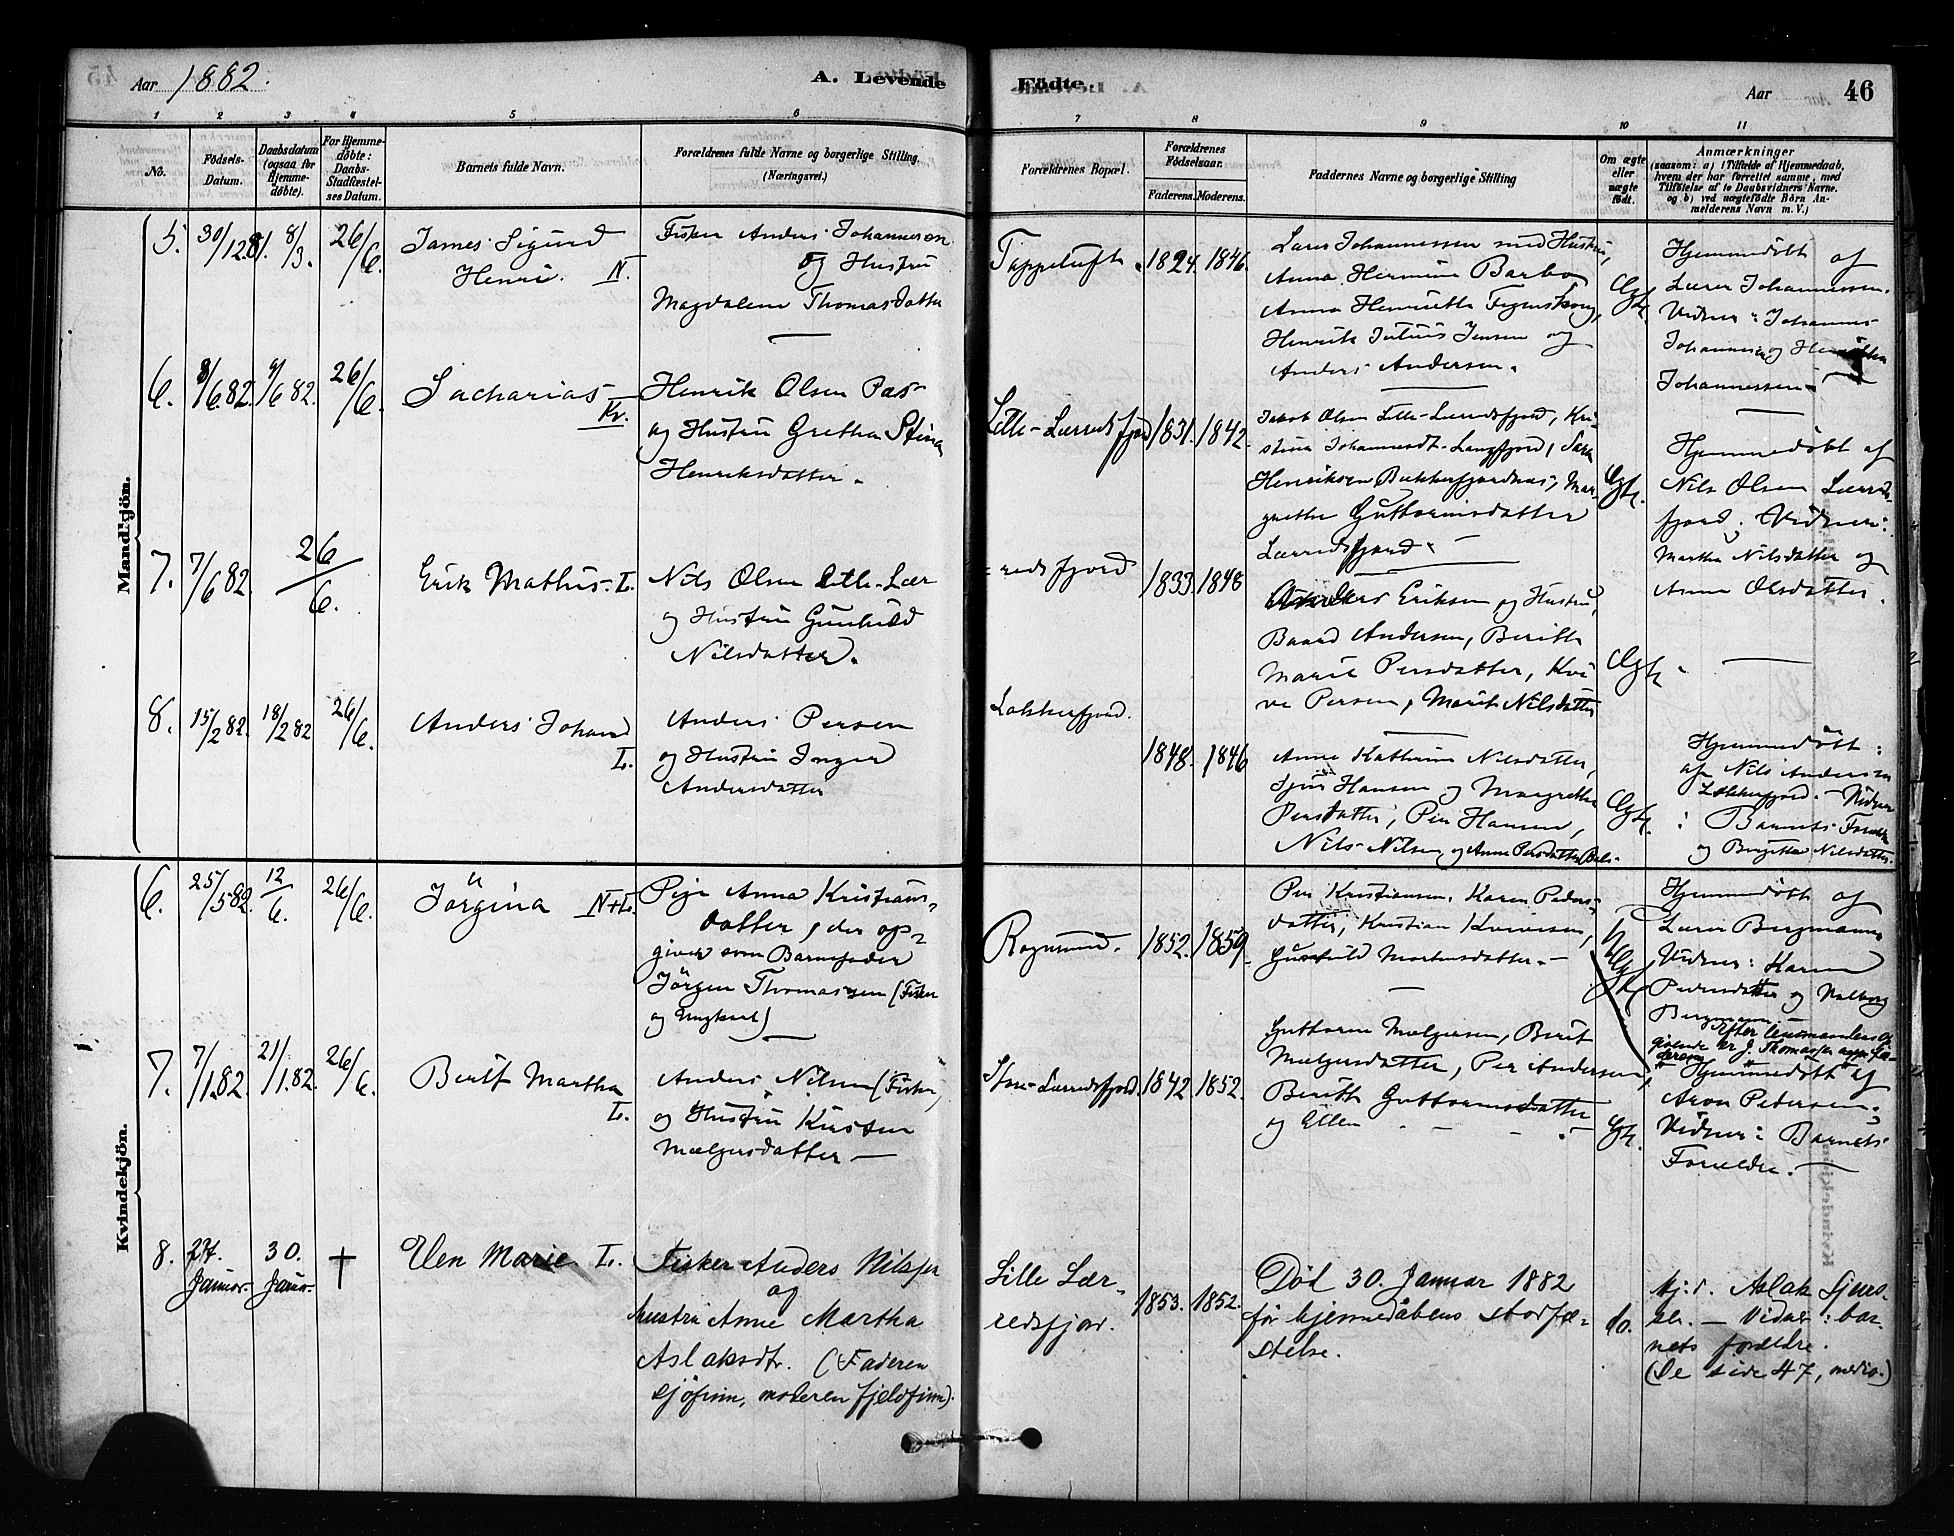 Aar 1882.
A. Levende
Födte.
Aar
46
1 2 3 4 5 6 7 8 9 10 11
No.
Födsels-
Datum.
Daabsdatum
(ogsaa for
Hjemme-
døbte).
For Hjemme-
døbte:
Daabs-
Stadfæstel-
ses Datum.
Barnets fulde Navn.
Forældrenes fulde Navne og borgerlige Stilling.
(Næringsvei.)
Forældrenes Bopæl.
Forældrenes
Födselsaar.
Faderens. Moderens.
Faddernes Navne og borgerlige Stilling
Om ægte
eller
uægte
født.
Anmærkninger
(saasom: a) i Tilfælde af Hjemmedaab,
hvem der har forrettet samme, med
Tilføielse af to Daabsvidners Navne,
og b) ved uægtefødte Börn An-
melderens Navn m. V.)
Mandkjön.
5.
30/12 81.
8/3.
26/6.
James Sigurd
Henri. N.
Fisker Anders Johannesen
og Hustru
Magdalena Thomasdatter
Tappeluft
1824. 1846.
Lærer Johannessen med Hustru,
Anna Hermine Barbo
Anna Henriette Figenskoug,
Henrik Julius Jensen og
Anders Andersen.
Ægte.
Hjemmedøbt af
Lærer Johannessen.
Vidner: Johannes
Johannesen og
Johannessen
6.
8/6.82.
9/6 82.
26/6.
Sacharias
Kv.
Henrik Olsen Pas-
og Hustru Gretha Stina
Henriksdatter.
Lille-Lærredsfjord
1831. 1842.
Jakob Olsen Lille-Lærredsfjord, Kri-
stina Johannesdt. Langfjord, Sara
Henriksen Bukkefjordnæs, Mar-
grethe Guttormsdatter
Lærredsfjord.
Ægte.
Hjemmedøbt af
Nils Olsen Lærreds-
fjord. Vidner:
Martha Nilsdatter og
Anna Olsdatter.
7.
7/6 82.
26/6.
Erik Mathis L.
Nils Olsen Lille-Lær
og Hustru Gunhild
Nilsdatter.
=redsfjord
1833. 1848
Anders Eriksen og Hustru,
Baard Andersen, Beritte
Marie Persdatter, Kvi-
ve Persen, Marit Nilsdatter
Ægte.
8.
15/2 82.
18/2 82
26/6.
Anders Johan
L.
Anders Persen
og Hustru Inger
Andersdatter
Lokkerfjord.
1848. 1846
Anne Kathrine Nilsdatter,
Sjur Hansen og Margrethe
Persdatter, Per Hansen,
Nils Nilsen, og Anne Persdatter
Ægte.
Hjemmedøbt:
af Nils Andersen
Lokkerfjord. - Vidner
: Barnets Forældre
og Birgitte Nilsdatter.
Kvindekjön.
6.
25/5 82.
12/6.
26/6.
Jörgina N+L.
Pige Anna Kristians-
datter, der op-
giver som Barnefader
Jörgen Thomassen (Fisker
og Ungkarl)
Rognsund.
1852. 1859.
Per Kristiansen, Karen Peders-
datter, Kristian Kvivesen,
Gunhild Mortensdatter.
Uægte
Hjemmedøbt af
Lærer Bergmann.
Vidner: Karen
Pedersdatter og Valborg
Bergmann.
7.
7/1.82.
21/1.82.
26/6.
Berit Martha
L.
Anders Nilsen (Fisker)
og Hustru Kirsten
Mælgersdatter
Store-Lærredsfjord.
1842. 1852.
Guttorm Mælgersen, Berit
Mælgersdatter, Per Andersen,
Beritte Guttormsdatter
og Ellen
Ægte.
Hjemmedøbt af
Aron Pedersen.
Vidner: Barnets
Forældre.
8.
27.
Januar.
30.
Januar.
†
Elen Marie L.
Fisker Anders Nilsen
og
hustru Anne Martha
Aslaksdtr. (Faderen
sjöfinn, moderen fjeldfinn).
Lille Lær-
redsfjord.
1853. 1852.
Död 30. Januar 1882
för hjemmedåbens stadfæ-
stelse.
do.
Hj.d. Aslak Sjurs-
sen. - Vidner: bar-
nets forældre.
(Se side 47, medio.)